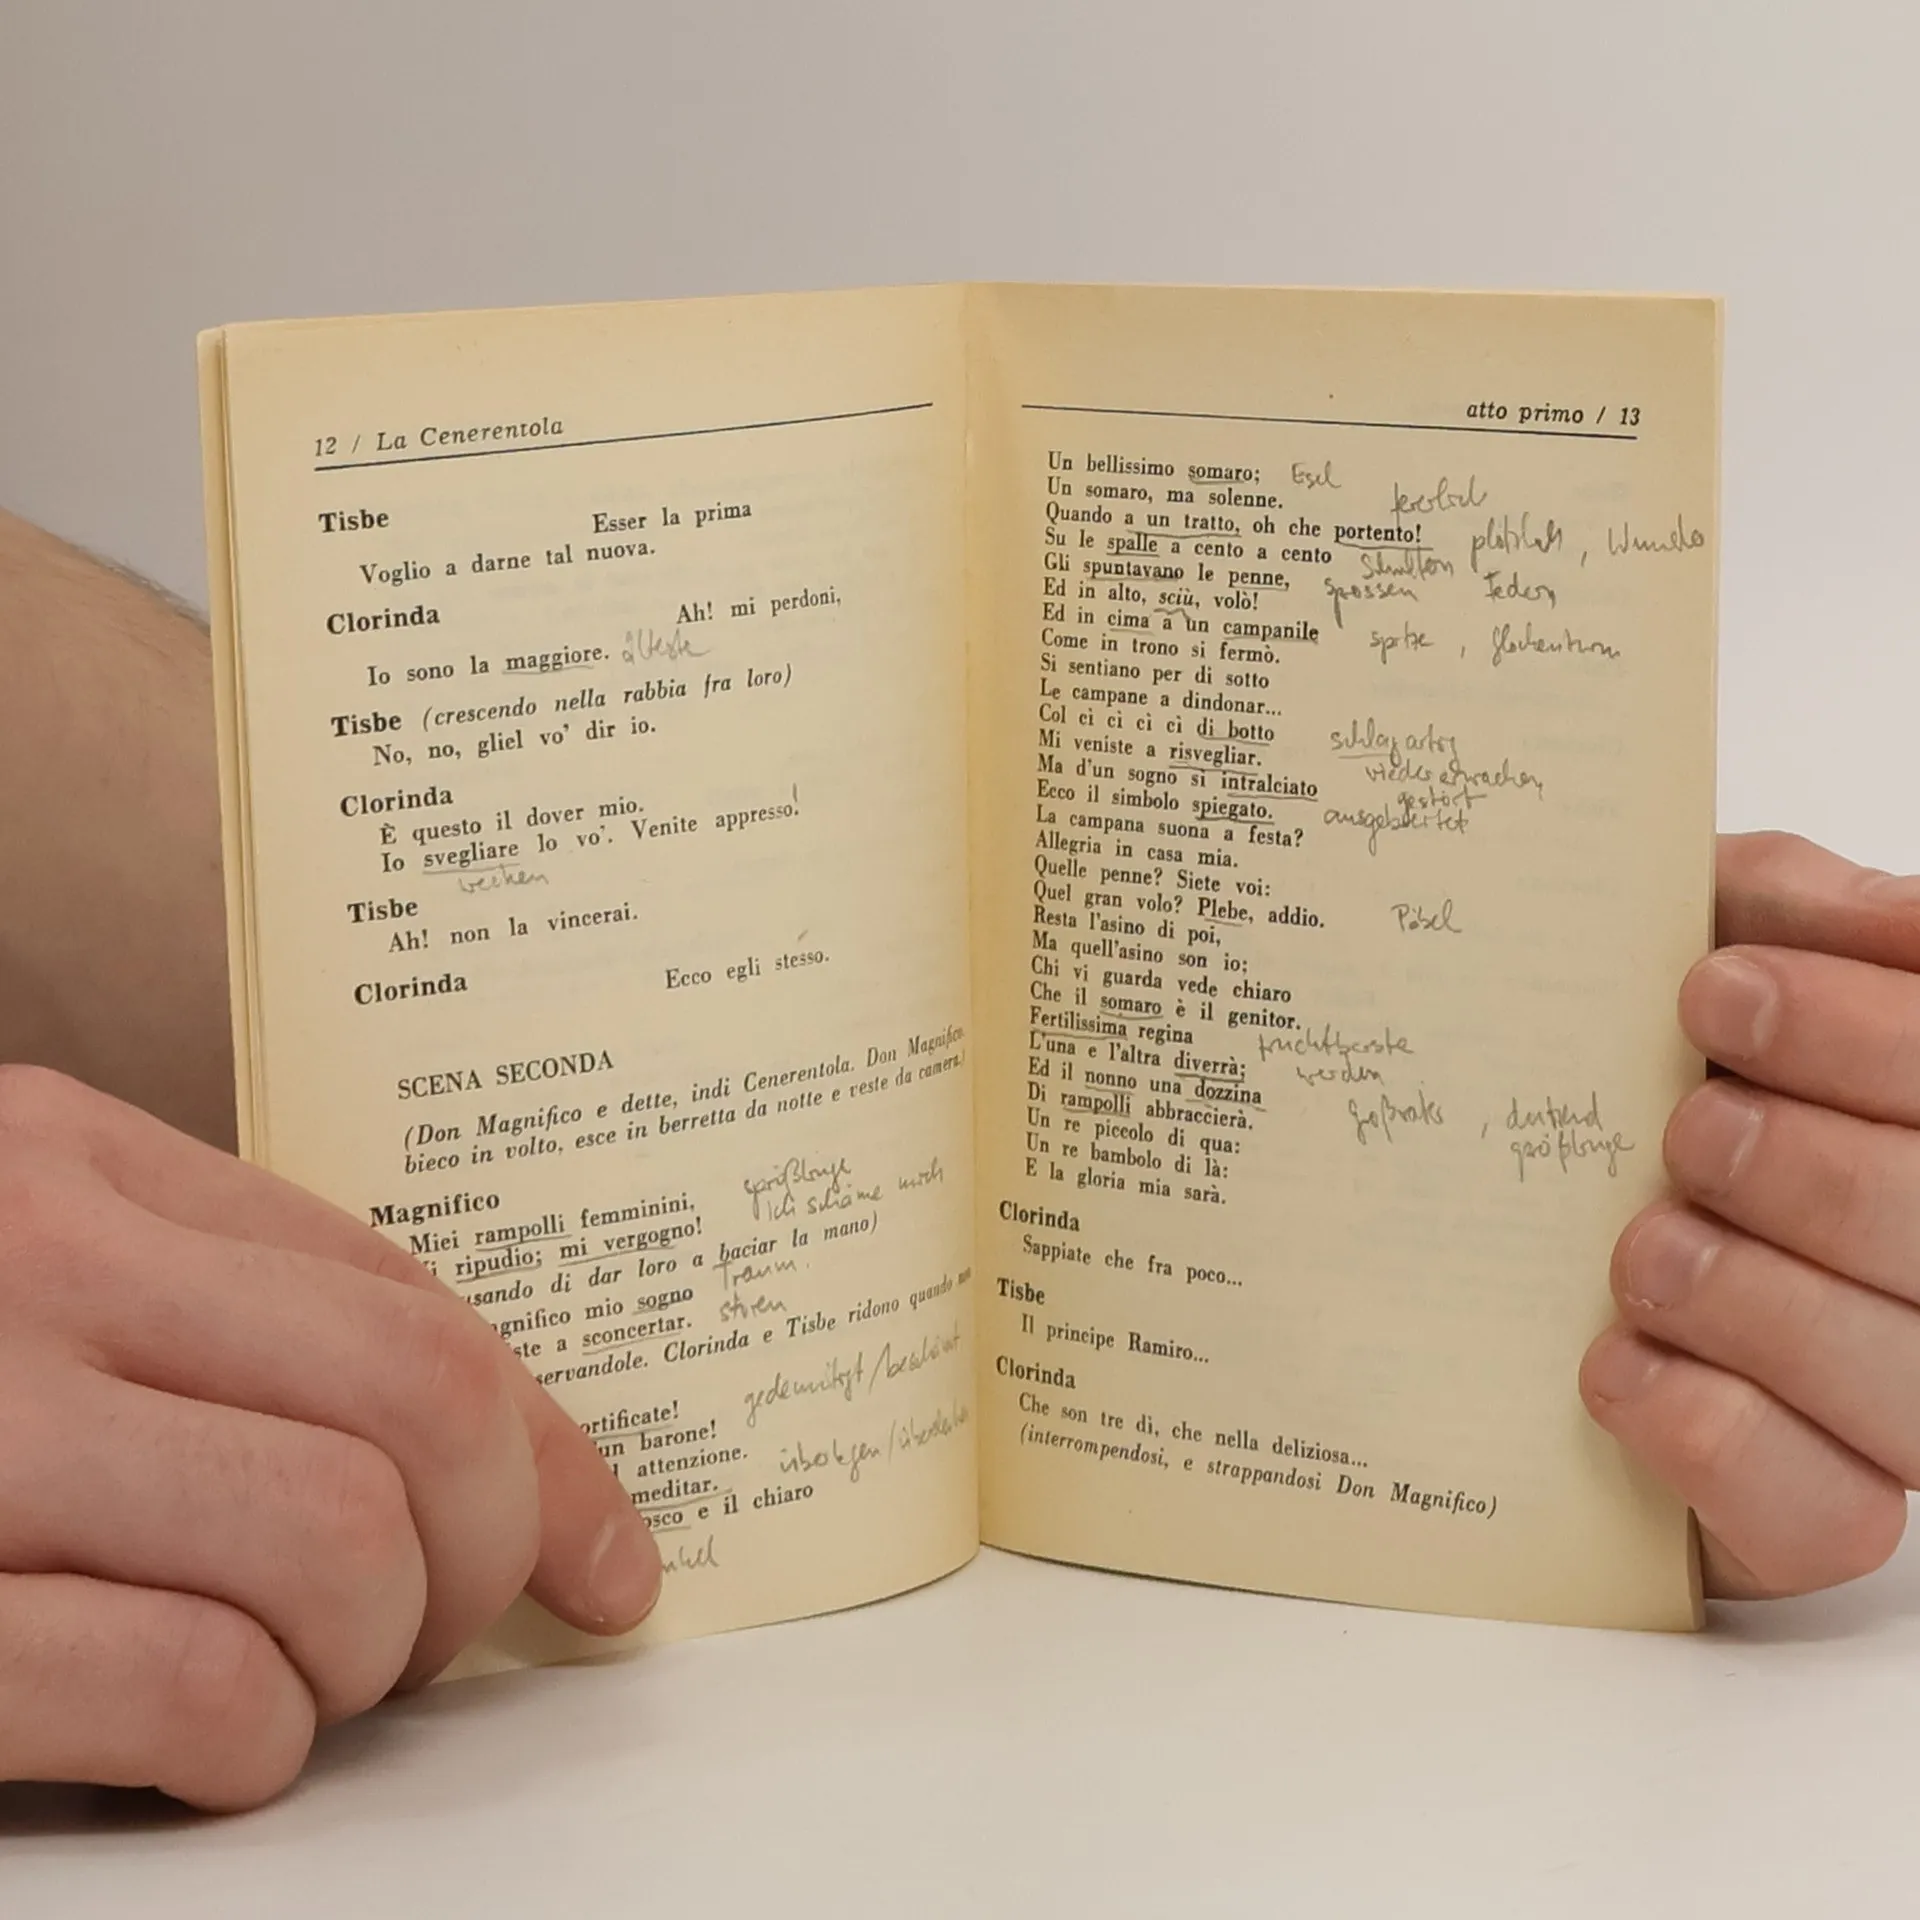 12 / La Cenerentola
Tisbe
Esser la prima
Voglio a darne tal nuova.
Clorinda
Ah! mi perdoni,
Io sono la maggiore. älteste
Tisbe (crescendo nella rabbia fra loro)
No, no, gliel vo' dir io.
Clorinda
È questo il dover mio.
Io svegliare lo vo'. Venite appresso!
wecken
Tisbe
Ah! non la vincerai.
Clorinda
Ecco egli stesso.
SCENA SECONDA
(Don Magnifico e dette, indi Cenerentola. Don Magnifico,
bieco in volto, esce in berretta da notte e veste da camera.)
Magnifico
Miei rampolli femminini, sprößlinge
ripudio; mi vergogno! Ich schäme mich
di dar loro a baciar la mano)
mio sogno Traum.
a sconcertar. stören
Clorinda e Tisbe ridono quando
gedemütigt / beschämt
un barone!
attenzione.
meditar. überlegen /
e il chiaro
atto primo / 13
Un bellissimo somaro; Esel
Un somaro, ma solenne. feierlich
Quando a un tratto, oh che portento! plötzlich, Wunder
Su le spalle a cento a cento Schultern
Gli spuntavano le penne, sprossen Federn
Ed in alto, sciù, volò!
Ed in cima a un campanile spitze, Glockenturm
Come in trono si fermò.
Si sentiano per di sotto
Le campane a dindonar...
Col ci ci ci ci di botto schlagartig
Mi veniste a risvegliar. wiedererwachen
Ma d'un sogno si intralciato gestört
Ecco il simbolo spiegato. ausgebreitet
La campana suona a festa?
Allegria in casa mia.
Quelle penne? Siete voi:
Quel gran volo? Plebe, addio. Pöbel
Resta l'asino di poi,
Ma quell'asino son io;
Chi vi guarda vede chiaro
Che il somaro è il genitor.
Fertilissima regina fruchtbarste
L'una e l'altra diverrà; werden
Ed il nonno una dozzina Großvater, dutzend
Di rampolli abbraccierà. sprößlinge
Un re piccolo di qua:
Un re bambolo di là:
E la gloria mia sarà.
Clorinda
Sappiate che fra poco...
Tisbe
Il principe Ramiro...
Clorinda
Che son tre dì, che nella deliziosa...
(interrompendosi, e strappandosi Don Magnifico)